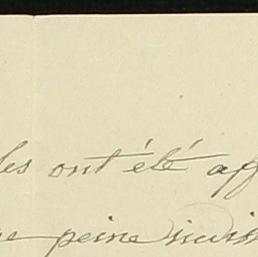 les ont été aff
e peine